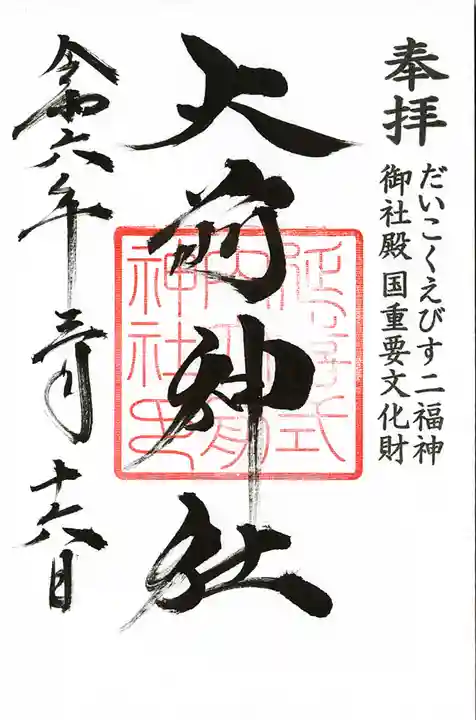 奉拝
だいこくえびす二福神
御社殿 国重要文化財
大前神社
延喜式
内大前
神社印
令和六年三月十六日